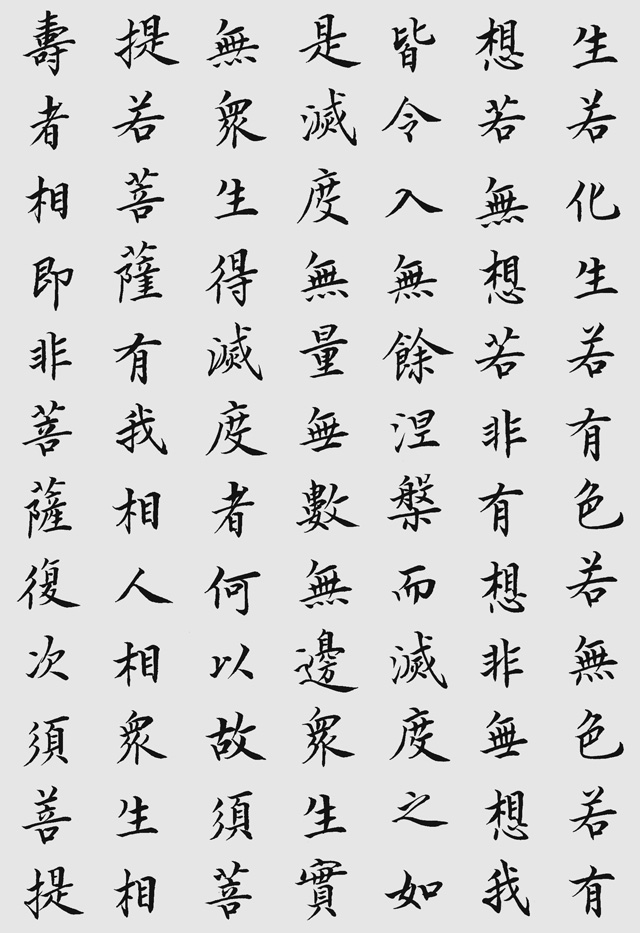 生若化生若有色若無色若有
想若無想若非有想非無想我
皆令入無餘涅槃而滅度之如
是滅度無量無數無邊眾生實
無眾生得滅度者何以故須菩
提若菩薩有我相人相眾生相
壽者相即非菩薩復次須菩提